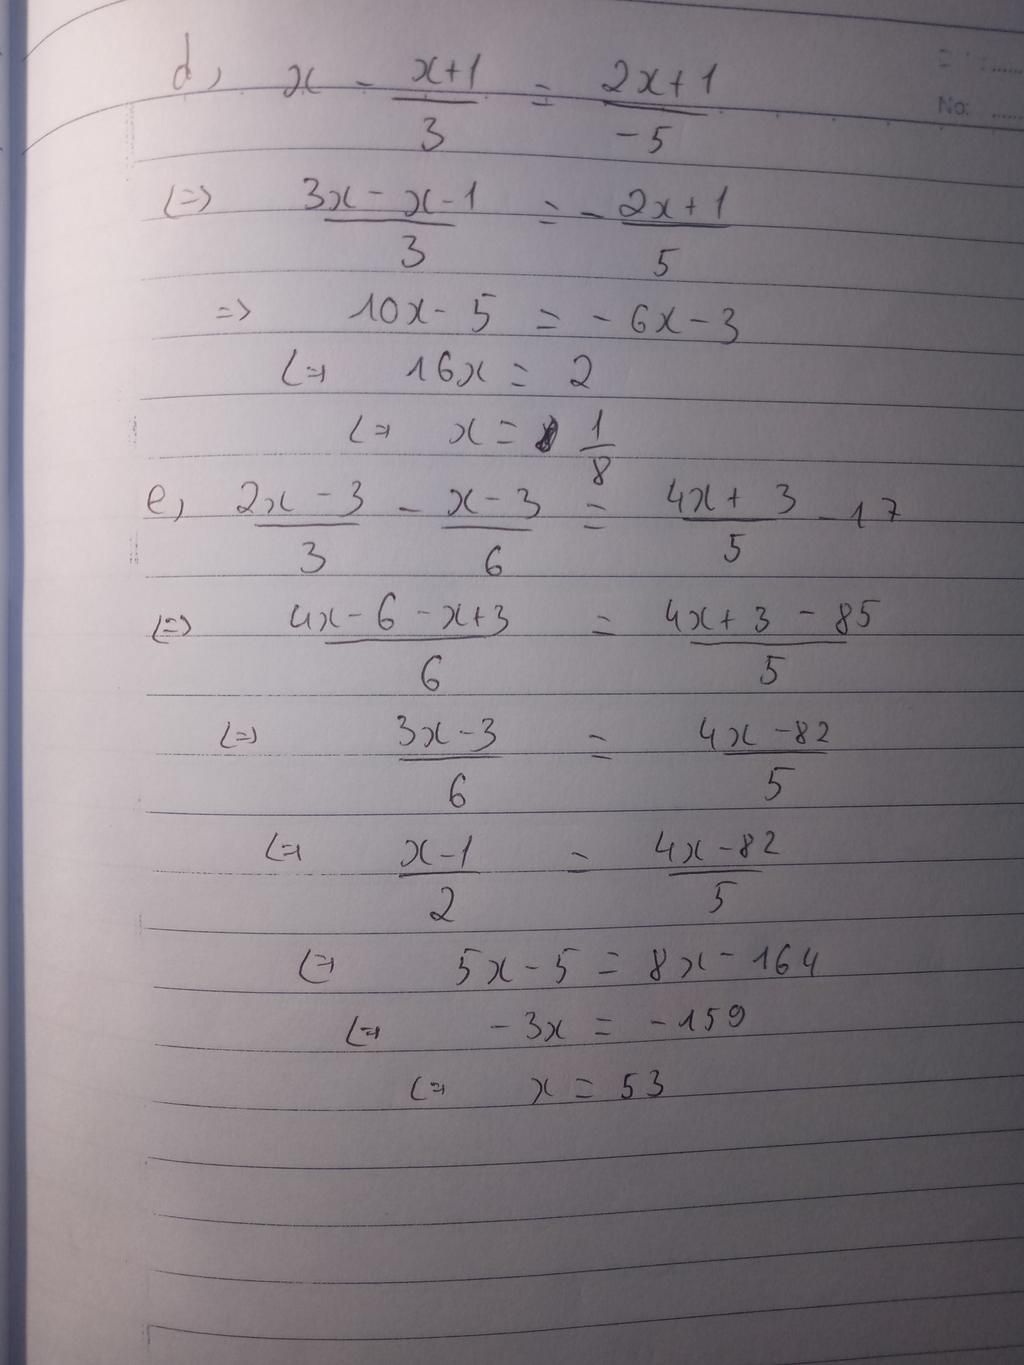 d, x - \frac{x+1}{3} = \frac{2x+1}{-5}
<=> \frac{3x - x - 1}{3} = - \frac{2x+1}{5}
=> 10x - 5 = - 6x - 3
<=> 16x = 2
<=> x = \frac{1}{8}
e, \frac{2x - 3}{3} - \frac{x - 3}{6} = \frac{4x + 3}{5} - 17
<=> \frac{4x - 6 - x + 3}{6} = \frac{4x + 3 - 85}{5}
<=> \frac{3x - 3}{6} = \frac{4x - 82}{5}
<=> \frac{x - 1}{2} = \frac{4x - 82}{5}
<=> 5x - 5 = 8x - 164
<=> - 3x = - 159
<=> x = 53
No: